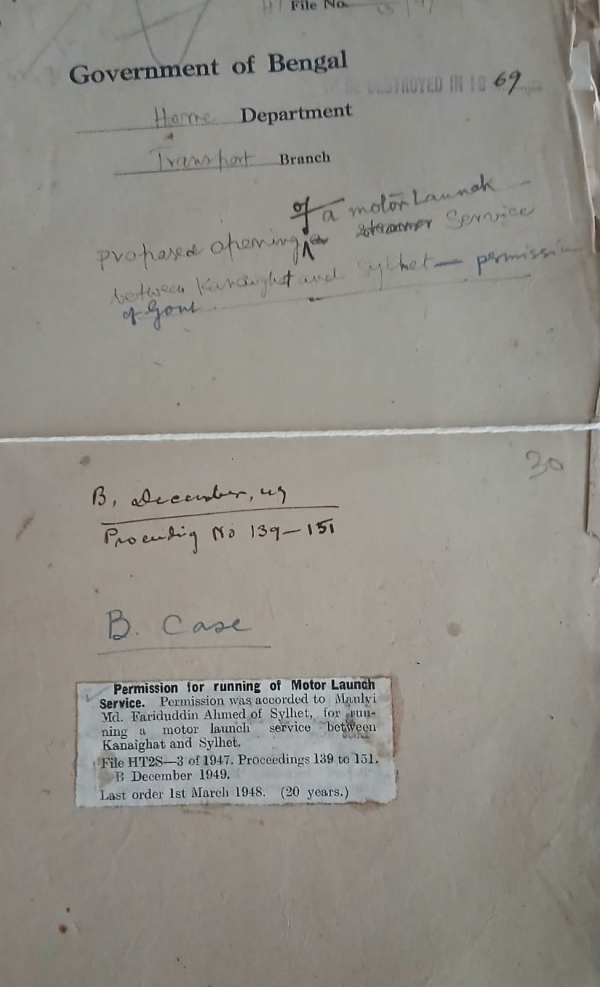 File No.
Government of Bengal
TO BE DESTROYED IN 19 69
Home Department
Transport Branch
of a motor Launch
proposed opening steamer Service
between Kanaighat and Sylhet — permission
of Govt.
30
B, December, 49
Proceeding No 139–151
B. Case
Permission for running of Motor Launch
Service. Permission was accorded to Maulvi
Md. Fariduddin Ahmed of Sylhet, for run-
ning a motor launch service between
Kanaighat and Sylhet.
File HT2S—3 of 1947. Proceedings 139 to 151.
B December 1949.
Last order 1st March 1948. (20 years.)